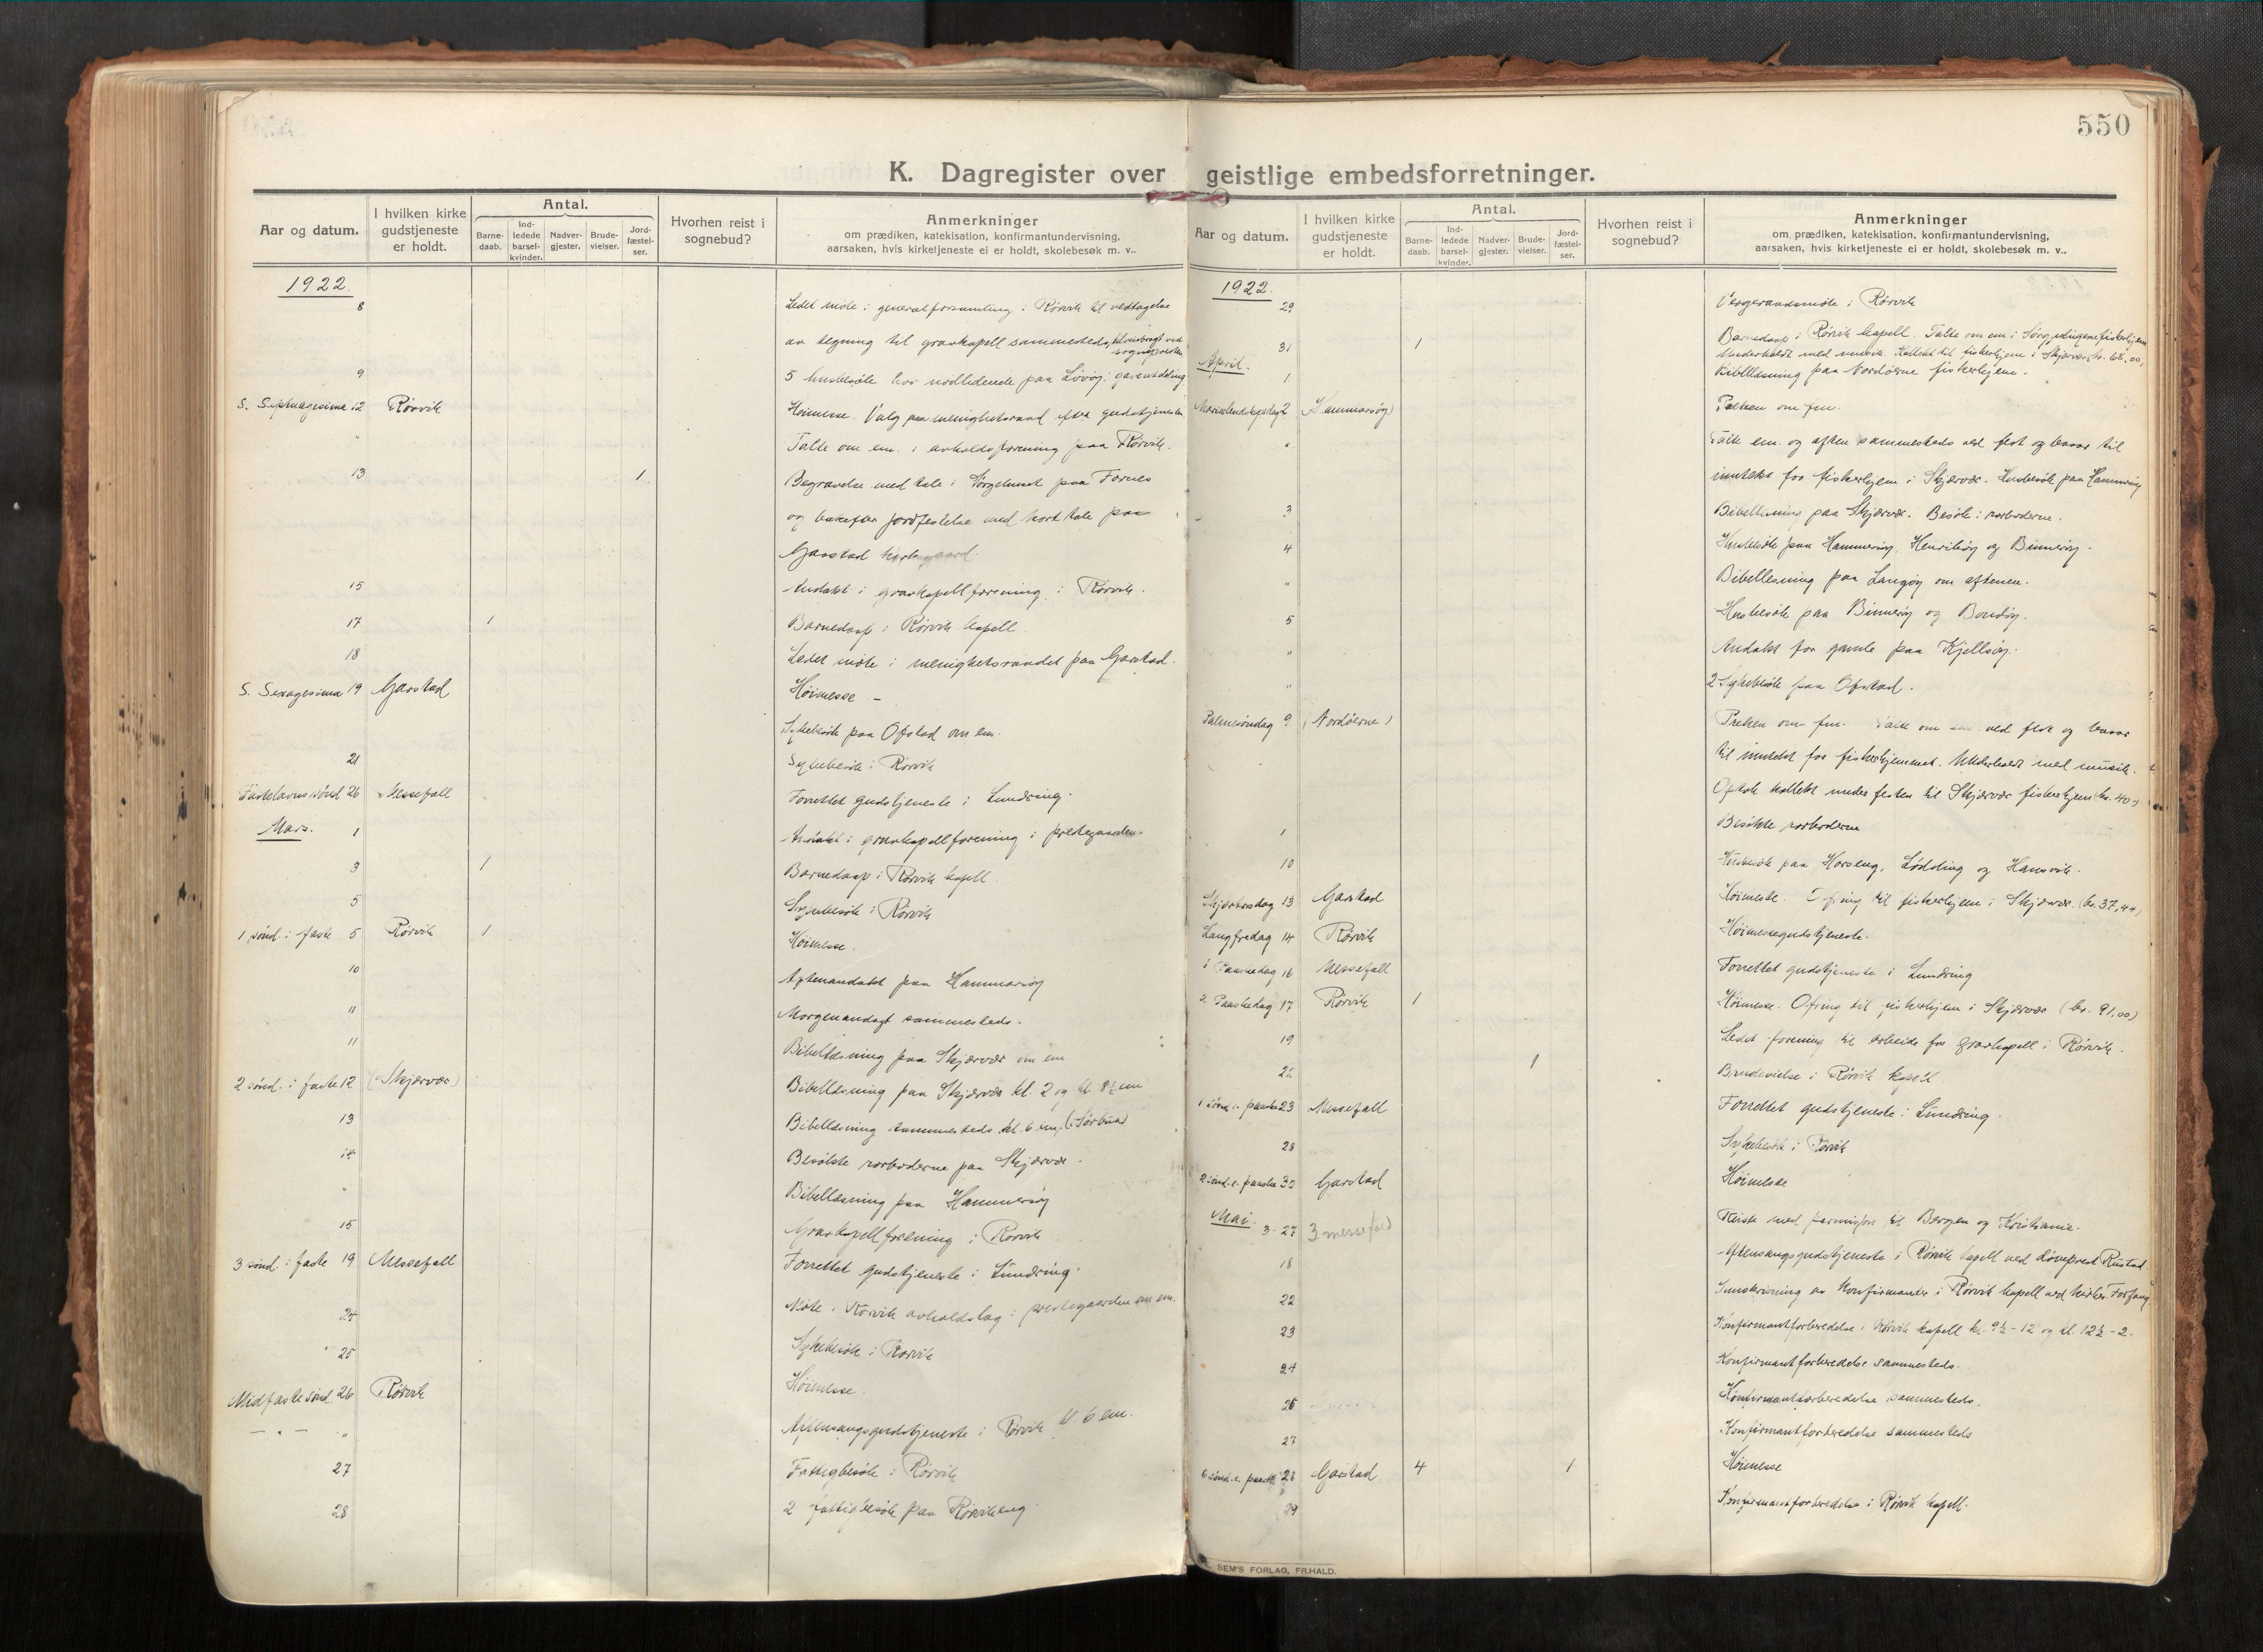 550
K. Dagregister over geistlige embedsforretninger.
Aar og datum.
I hvilken kirke gudstjeneste er holdt.
Antal.
Barne-daab.
Ind-ledede barsel-kvinder.
Nadver-gjester.
Brude-vielser.
Jord-fæstel-ser.
Hvorhen reist i sognebud?
Anmerkninger
om prædiken, katekisation, konfirmantundervisning,
aarsaken, hvis kirketjeneste ei er holdt, skolebesøk m. v..
1922.
8 Ledet møte i generalforsamling i Rørvik til vedtagelse
av tegning til gravkapell sammesteds,
9 5 husbesøk hos nødlidende paa
S. Septuagesima 12 Rørvik Høimesse. Valg paa menighetsraad efter gudstjenesten
" Talte om em. i avholdsforening paa Rørvik.
13 1 Begravelse med tale i Sørgehuset paa Fornes
og bakefter jordfestelse med kort tale paa
Garstad kirkegaard.
15 Andakt i gravkapellforening i Rørvik.
17 1 Barnedaap i Rørvik kapell
18 Ledet møte i menighetsraadet paa Garstad.
S. Sexagesima 19 Garstad Høimesse -
Sykebesøk paa Ofstad om em.
21 Sykebesøk i Rørvik
Fastelavns sønd 26 Messefall Forrettet gudstjeneste i Lundring.
Mars. 1 Andakt i gravkapellforening i prestegaarden
3 1 Barnedaap i Rørvik kapell.
5 Sykebesøk i Rørvik
1 sønd. i faste 5 Rørvik 1 Høimesse.
10 Aftenandakt paa Hammarøy
11 Morgenandagt sammesteds.
11 Bibellæsning paa Skjærvær om em.
2 sønd. i faste 12 (Skjærvær) Bibellæsning paa Skjærvær kl. 2 og kl. 8½ em
13 Bibellæsning sammesteds kl. 6 em.
14 Besøkte rorboderne paa Skjærvær.
" Bibellæsning paa Hammerøy
15 Gravkapellforening i Rørvik
3 sønd. i faste 19 Messefall Forrettet gudstjeneste i Lundring.
24 Møte i Rørvik avholdslag i prestegaarden om em.
" 25 Sykebesøk i Rørvik
Midfaste sønd 26 Rørvik Høimesse.
— " — " Aftensangsgudstjeneste i Rørvik kl 6 em.
27 Fattigbesøk i Rørvik
28 2 fattigbesøk paa Rørvikeng.
Aar og datum.
I hvilken kirke gudstjeneste er holdt.
Antal.
Barne-daab.
Ind-ledede barsel-kvinder.
Nadver-gjester.
Brude-vielser.
Jord-fæstel-ser.
Hvorhen reist i sognebud?
Anmerkninger
om prædiken, katekisation, konfirmantundervisning,
aarsaken, hvis kirketjeneste ei er holdt, skolebesøk m. v..
1922.
29 Vergeraadsmøte i Rørvik
31 1 Barnedaap i Rørvik kapell. Talte om em i
Underholdt med musik. Kollekt til fiskerhjem i Skjærvær, kr. 68,00,
April. 1 Bibellæsning paa Nordøerne fiskerhjem.
2 (Hammarøy) Preken om fm.
" Talte em. og aften sammesteds ved fest og basar til
inntekt for fiskerhjem i Skjærvær. Husbesøk paa Hammerøy
3 Bibellæsning paa Skjærvær. Besøk i rorboderne.
4 Husbesøk paa Hammerøy, Henrikøy og Binnerøy.
" Bibellesning paa Langøy om aftenen.
5 Husbesøk paa Binnerøy og Bondøy.
" Andakt for gamle paa Kjelløy.
" 2 Sykebesøk paa Ofstad.
Palmesøndag 9 (Nordøerne) Preken om fm. Talte om em ved fest og basar
til inntekt for fiskerhjemmet. Underholdt med musik.
Optok kollekt under festen til Skjærvær fiskerhjem (kr. 40.-)
Besøkte rorboderne
10 Husbesøk paa Horseng, Lødding og Hansvik.
Skjærtorsdag 13 Garstad Høimesse. Ofring til fiskerhjem i Skjærvær. (kr. 37,44)
Langfredag 14 Rørvik Høimessegudstjeneste.
1 Paaskedag 16 Messefall Forrettet gudstjeneste i Lundring
2 Paaskedag 17 Rørvik 1 Høimesse. Ofring til fiskerhjem i Skjærvær (kr. 91,00)
19 Ledet forening til arbeide for gravkapell i Rørvik.
22 1 Brudevielse i Rørvik kapell
1 sønd. e. paaske 23 Messefall Forrettet gudstjeneste i Lundring.
28 Sykebesøk i Rørvik
2 sønd. e. paaske 30 Garstad Høimesse
Mai. 3-27 3 messefald Reiste med permisjon til Bergen og Kristiania.
18 Aftensangsgudstjeneste i Rørvik kapell ved Rustad
22 Innskrivning av konfirmanter i Rørvik kapell ved
23 Konfirmantforberedelse i Rørvik kapell kl. 9½-12 og kl. 12½-2.
24 Konfirmantforberedelse sammesteds.
26 Konfirmantforberedelse sammesteds.
27 Konfirmantforberedelse sammesteds
6 sønd. e. paaske 28 Garstad 4 1 Høimesse
29 Konfirmantforberedelse i Rørvik kapell.
SEM'S FORLAG, FR.HALD.